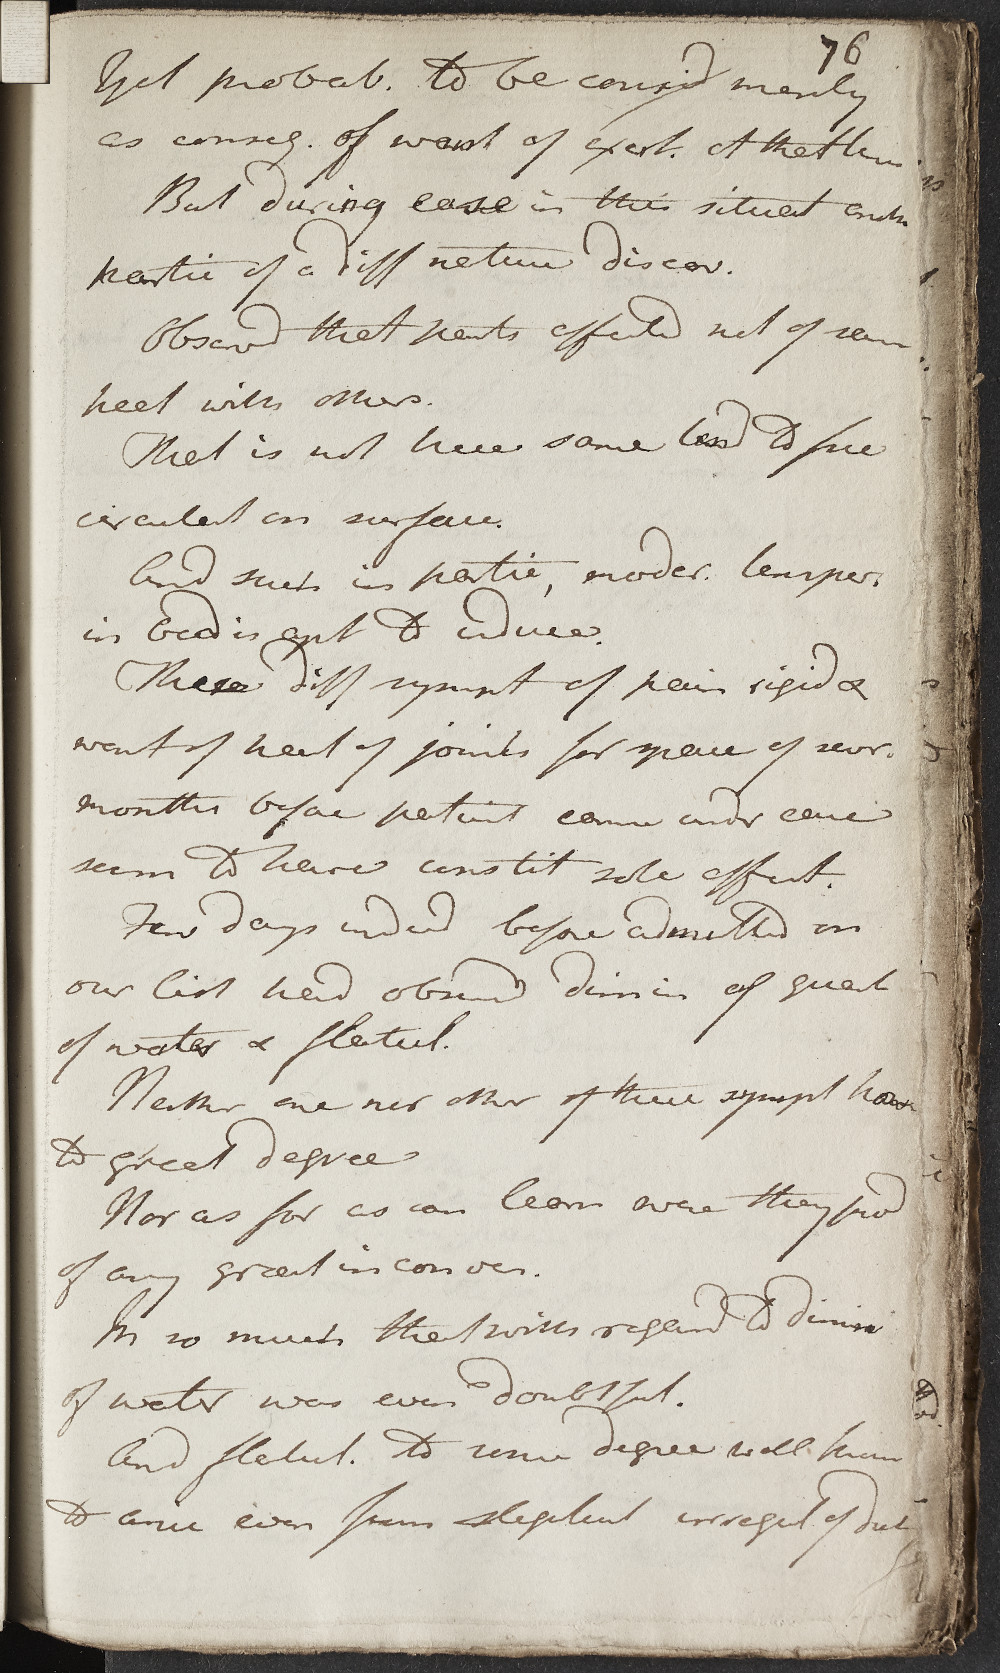 76
Yet probab. to be consid merely
as conseq. of want of exert. at that time
But during ease in this situat anoth
partic of a diff nature discov.
Observd that parts affected not of same
heat with others.
That is not here same tend to free
circulat on surface.
And such in partic, moder. temper.
in Ed is apt to induce.
These diff sympt of pain rigid &
want of heat of joints for space of sevr.
months before patient came undr care
seem to have constit sole affect.
Few days indeed before admitted on
our list had observd dimin of quant
of water & flatul.
Neither one nor other of these sympt have
to great degree
Nor as far as can learn were they prod
of any great inconven.
In so much that with regard to dimin
of water was even doubtful.
And flatul. to some degree well known
to arise even from slightest irregul. of diet